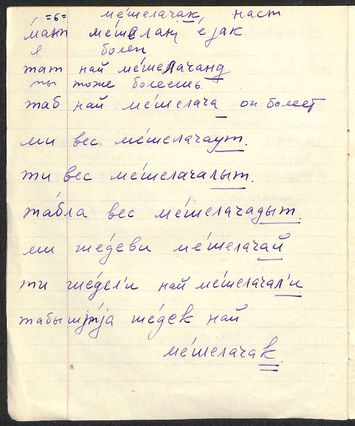 =6= ме́шелачак, наст
ма̄н ме́шелан ејак
я болен
тат най ме́шелачанд
ты тоже болеешь
таб най ме́шелача он болеет
ми вес ме́шелачаут.
ти вес ме́шелачалыт.
та́бла вес ме́шелачадыт.
ми те́деви ме́шелачай
ти те́дел'и най ме́шелачал'и
табышта те́дек най
ме́шелачак.